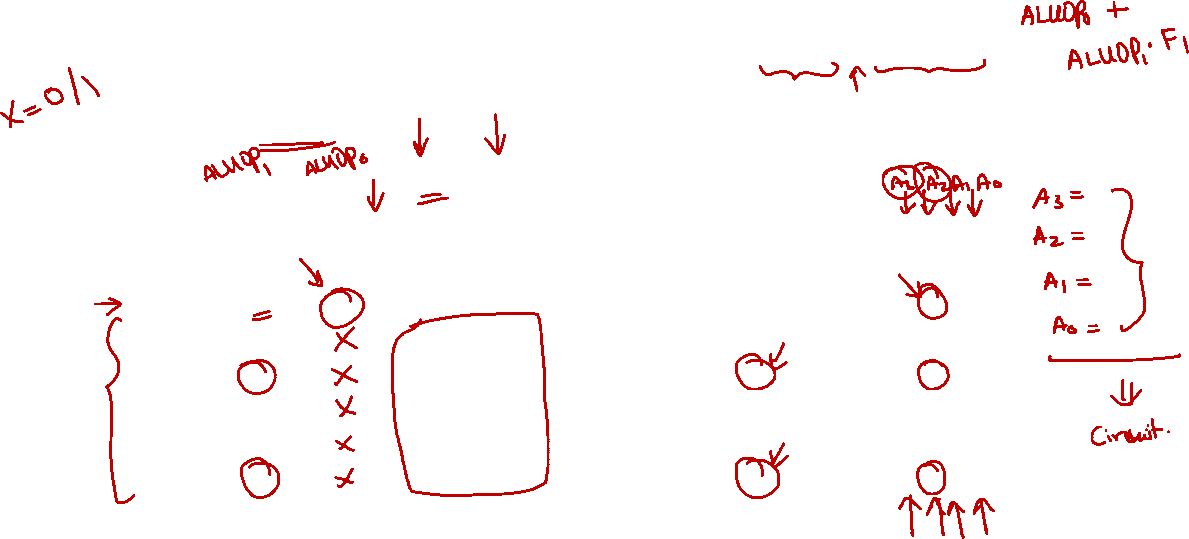 ALUOP0 +
ALUOP1 · F1
X = 0/1
ALUOP1 ALUOP0
=
A2 A2 A1 A0
A3 =
A2 =
A1 =
A0 =
=
X
X
X
X
X
Circuit.